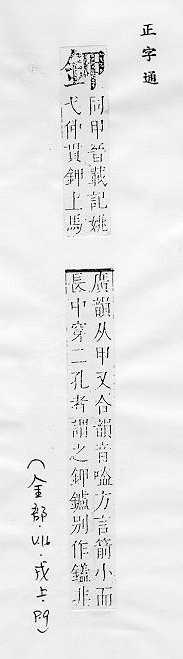 正字通
鉀
同甲晉載記姚
弋仲貫鉀上馬
廣韻从甲又合韻音嗑方言箭小而
長中穿二孔者謂之鉀鑪别作鎑非
(金部.V16.戌上.P9)